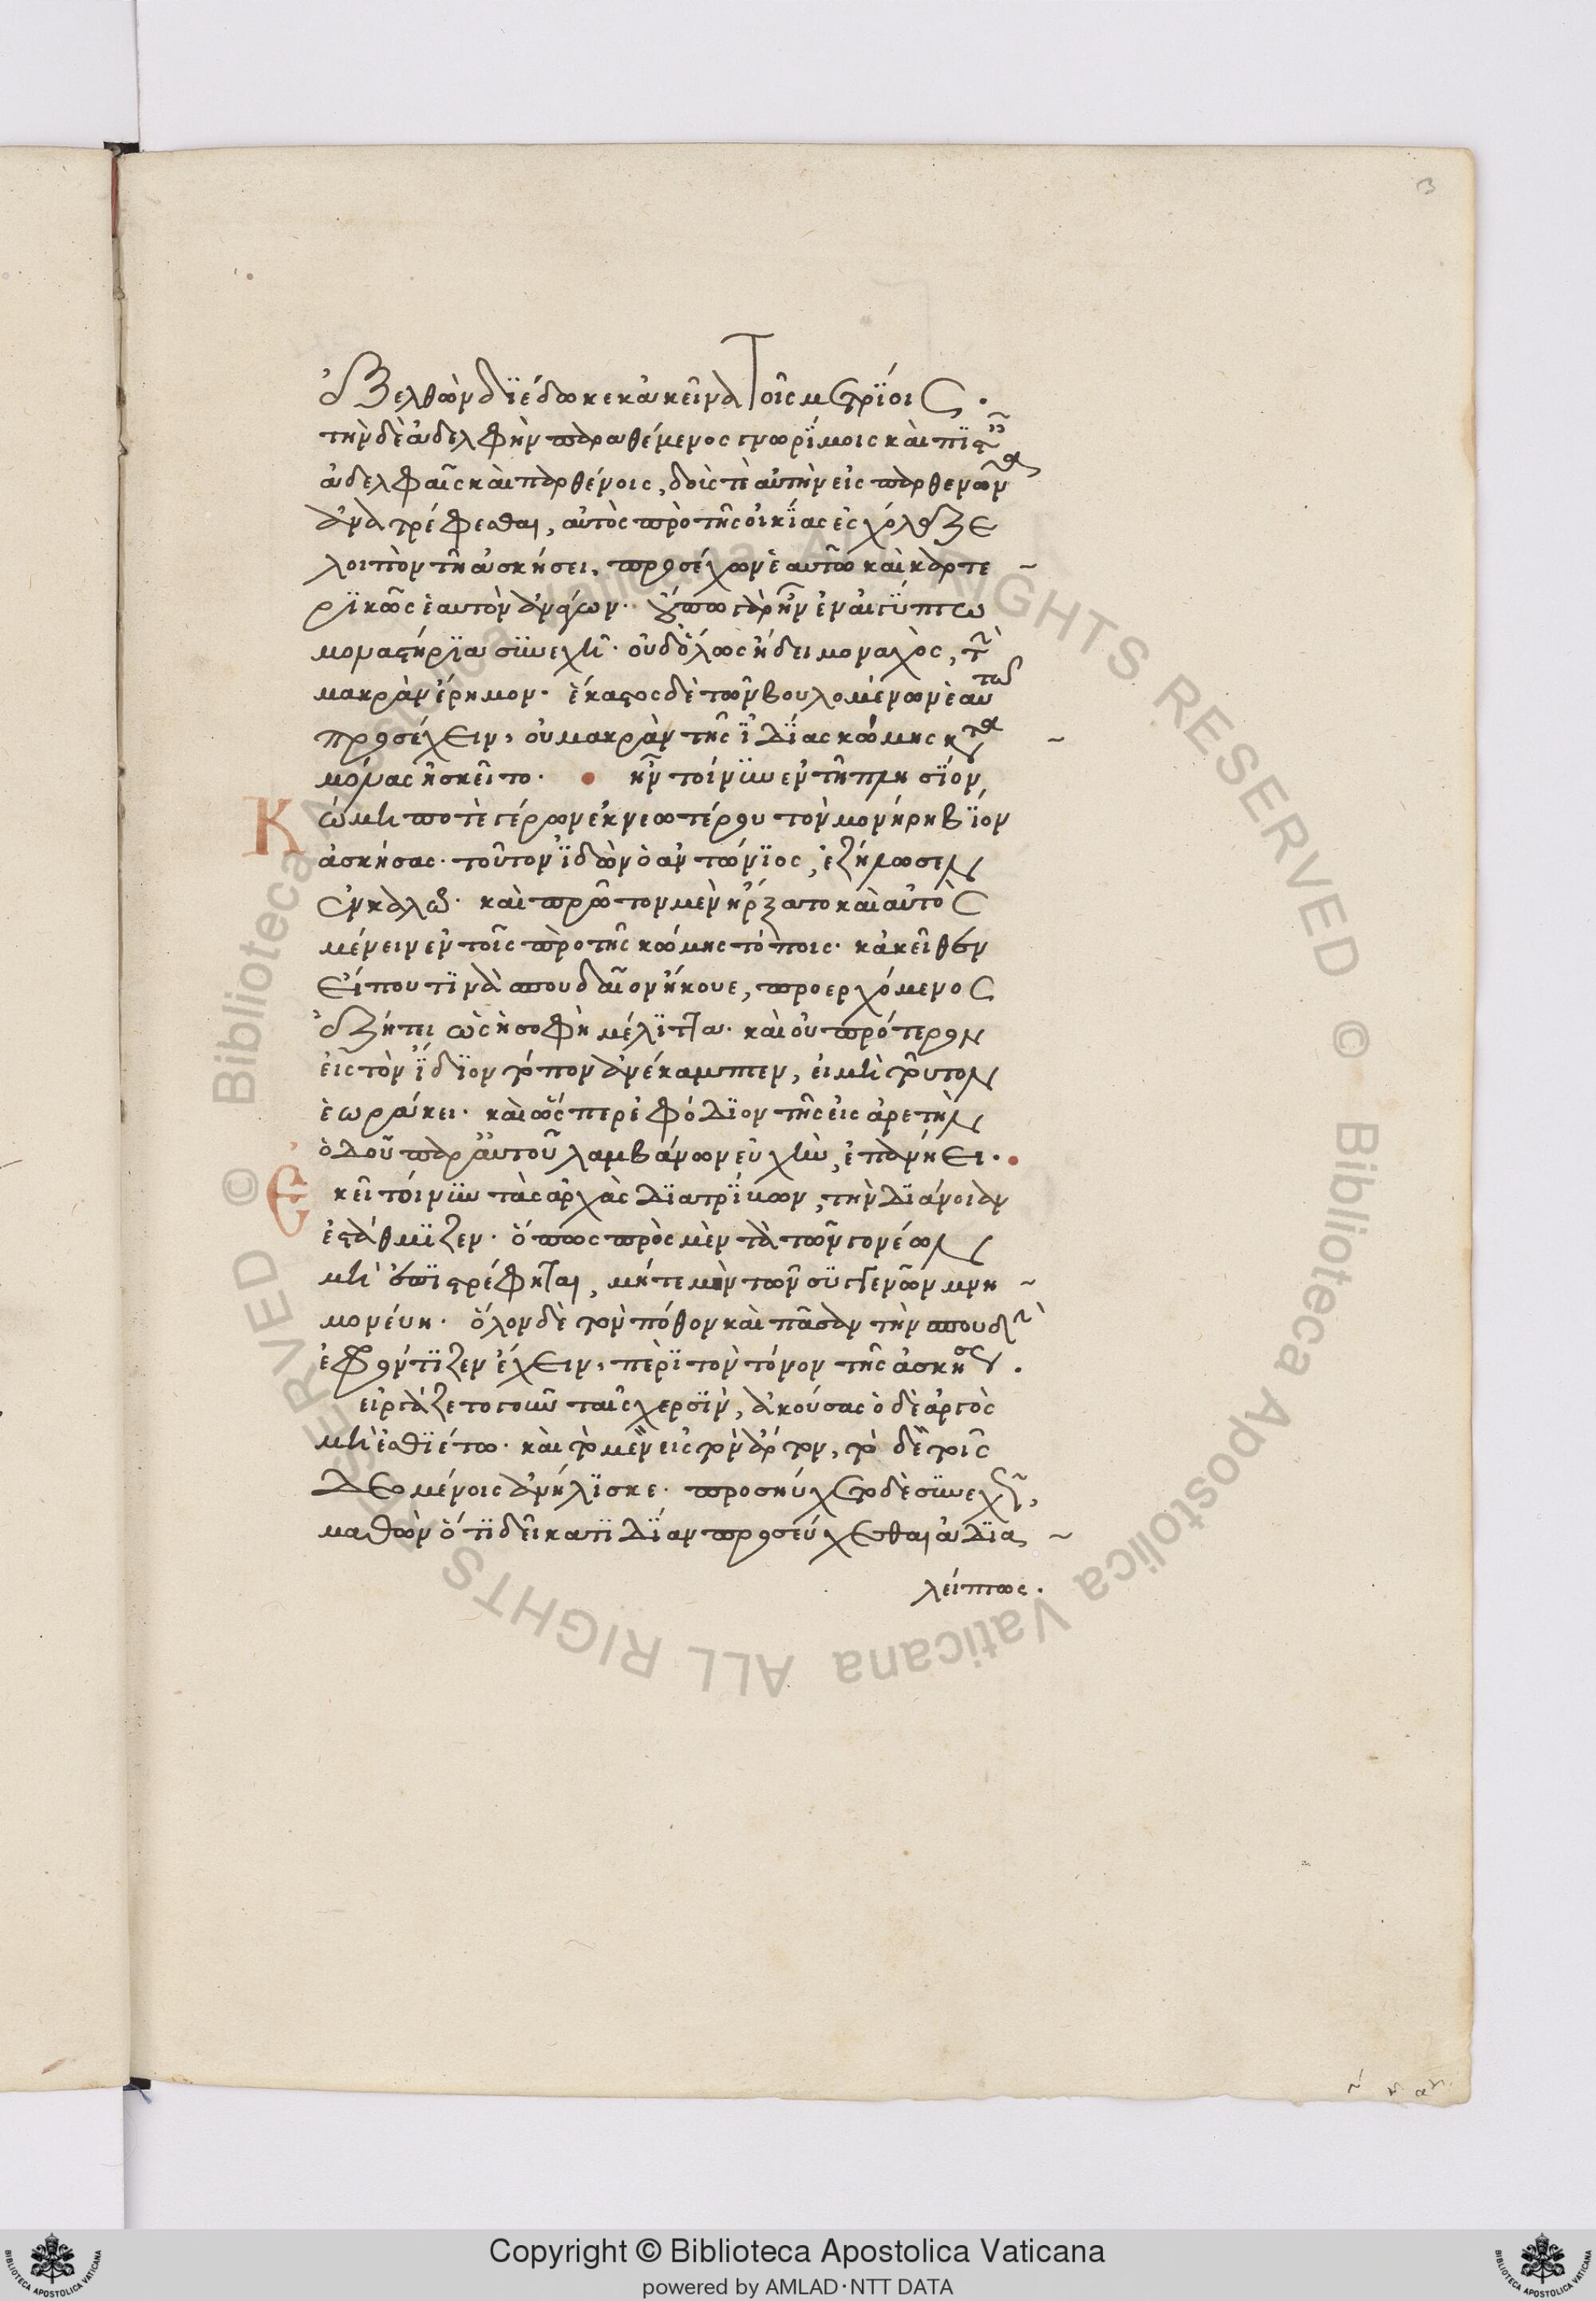 3
ἐξελθὼν διέδωκε κἀκεῖνα τοῖς μετρίοις.
τὴν δὲ ἀδελφὴν παραθέμενος γνωρίμοις καὶ πιστ
ἀδελφαῖς καὶ παρθένοις, δοίς τὲ αὐτὴν εἰς παρθενῶνα
ἀνατρέφεσθαι, αὐτὸς πρὸ τῆς οἰκίας ἐσχόλαζε
λοιπὸν τῆ ἀσκήσει, προσέχων ἑαυτῶ καὶ καρτε
ρικῶς ἑαυτὸν ἀνάγων· οὔπω γὰρ ἦν ἐν αἰγύπτω
μοναστήρια συνεχῆ· οὐδ' ὅλως ἤδει μοναχὸς, τὴν
μακρὰν ἔρημον· ἕκαστος δὲ τῶν βουλομένων ἑαυτῶ
προσέχειν, οὐ μακρὰν τῆς ἰδίας κώμης κατα
μόνας ἠσκεῖτο· ἦν τοίνυν ἐν τῆ πλησίον
Κώμη ποτὲ γέρων ἐκ νεωτέρου τὸν μονήρη βίον
ἀσκήσας· τοῦτον ἰδὼν ὁ ἀντώνιος, ἐζήλωσεν
ἐν καλῶ· καὶ πρῶτον μὲν ἤρξατο καὶ αὐτὸς
μένειν ἐν τοῖς πρὸ τῆς κώμης τόποις· κἀκεῖθεν
εἴ που τινὰ σπουδαῖον ἤκουε, προερχόμενος
ἐζήτει ὡς ἡ σοφὴ μέλιττα· καὶ οὐ πρότερον
εἰς τὸν ἴδιον τόπον ἀνέκαμπτεν, εἰ μὴ τοῦτον
ἑωράκει· καὶ ὥσπερ ἐφόδιον τῆς εἰς ἀρετὴν
ὁδοῦ παρ' αὐτοῦ λαμβάνων εὐχὴν, ἐπανήει.
Ἐκεῖ τοίνυν τὰς ἀρχὰς διατρίβων, τὴν διάνοιαν
ἐστάθμιζεν· ὅπως πρὸς μὲν τὰ τῶν γονέων
μὴ ἐπιστρέφηται, μήτε μὴν τῶν συγγενῶν μνη
μονεύη· ὅλον δὲ τὸν πόθον καὶ πᾶσαν τὴν σπουδὴν
ἐφρόντιζεν ἔχειν, περὶ τὸν τόνον τῆς ἀσκήσεως.
εἰργάζετο γοῦν ταῖς χερσὶν, ἀκούσας ὁ δὲ ἀργὸς
μὴ ἐσθιέτω· καὶ τὸ μὲν εἰς τὸν ἄρτον, τὸ δὲ τοῖς
δεομένοις ἀνήλισκε· προσηύχετο δὲ συνεχῶς,
μαθὼν ὅτι δεῖ κατιδίαν προσεύχεσθαι ἀδια
λείπτως.
Copyright © Biblioteca Apostolica Vaticana
powered by AMLAD·NTT DATA